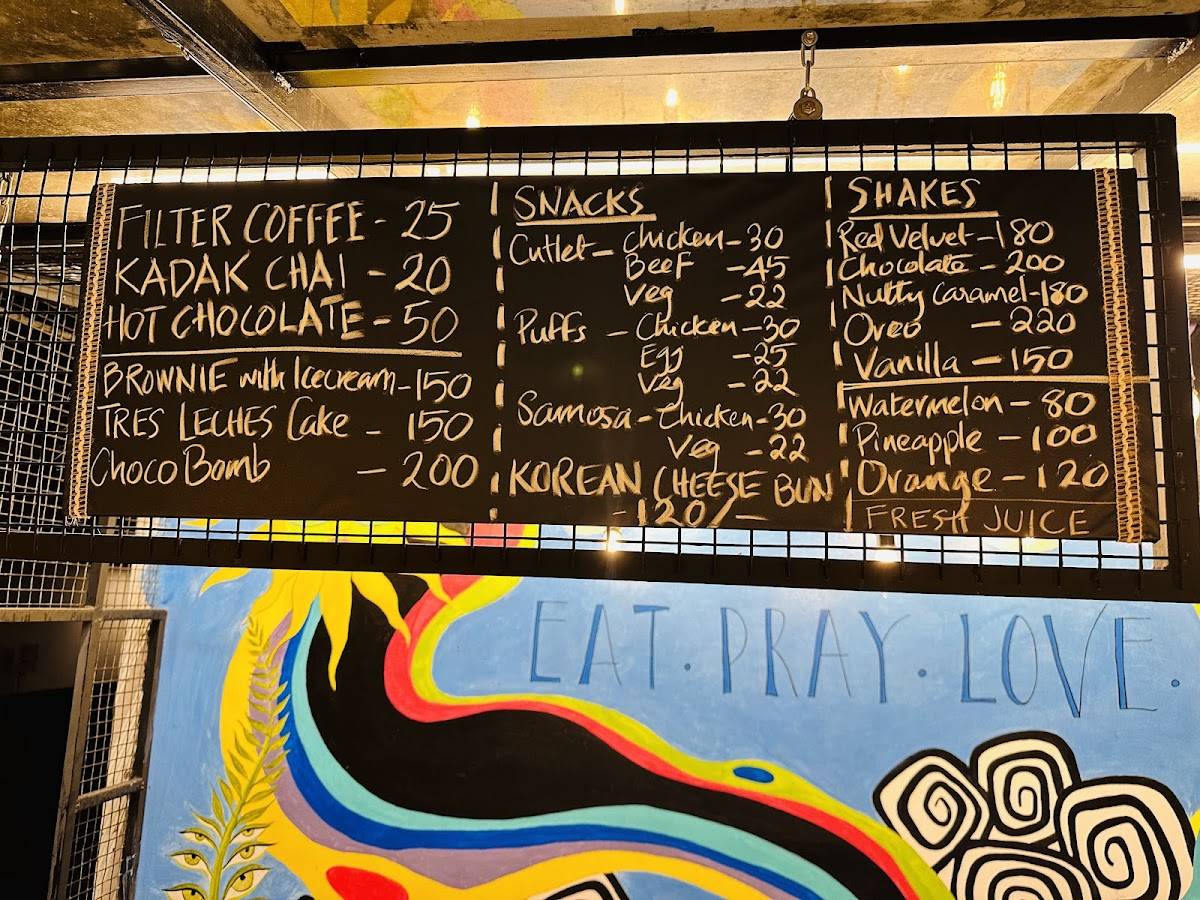 FILTER COFFEE - 25
KADAK CHAI - 20
HOT CHOCOLATE - 50
BROWNIE with Icecream - 150
TRES LECHES Cake - 150
Choco Bomb - 200
SNACKS
Cutlet - Chicken - 30
Beef - 45
Veg - 22
Puffs - Chicken - 30
Egg - 25
Veg - 22
Samosa - Chicken - 30
Veg - 22
KOREAN CHEESE BUN
- 120/-
SHAKES
Red Velvet - 180
Chocolate - 200
Nutty Caramel - 180
Oreo - 220
Vanilla - 150
Watermelon - 80
Pineapple - 100
Orange - 120
FRESH JUICE
EAT. PRAY. LOVE.